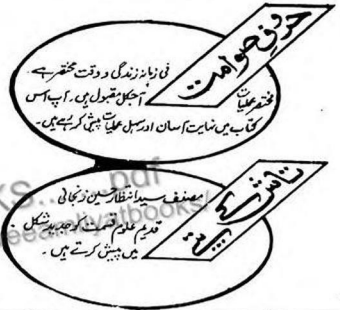 حروفِ صوامت
فی زمانہ زندگی و وقت مختصر ہے۔
مختصر عملیات آجکل مقبول ہیں۔ آپ اس
کتاب میں نہایت آسان اور سہل عملیات پیش کر رہے ہیں۔
تاش کے پتے
مصنف سید انتظار حسین زنجانی
قدیم علوم قسمت کو جدید شکل
میں پیش کرتے ہیں۔
KS.....pdf
freeamliyatbooks/